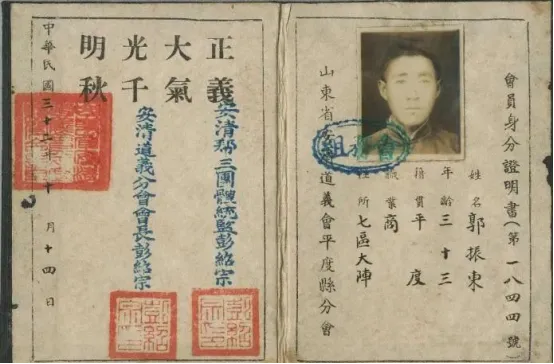 會員身分證明書(第一八四四號)
姓名 郭振東
年齡 三十三
籍貫 平度
職業 商
住所 七區大陣
山東省 道義會平度縣分會
正大光明
義氣千秋
安清幫三團體統監彭紹宗
安清道義分會會長彭紹宗
中華民國三十二年十月十四日
彭紹宗印
彭紹宗印